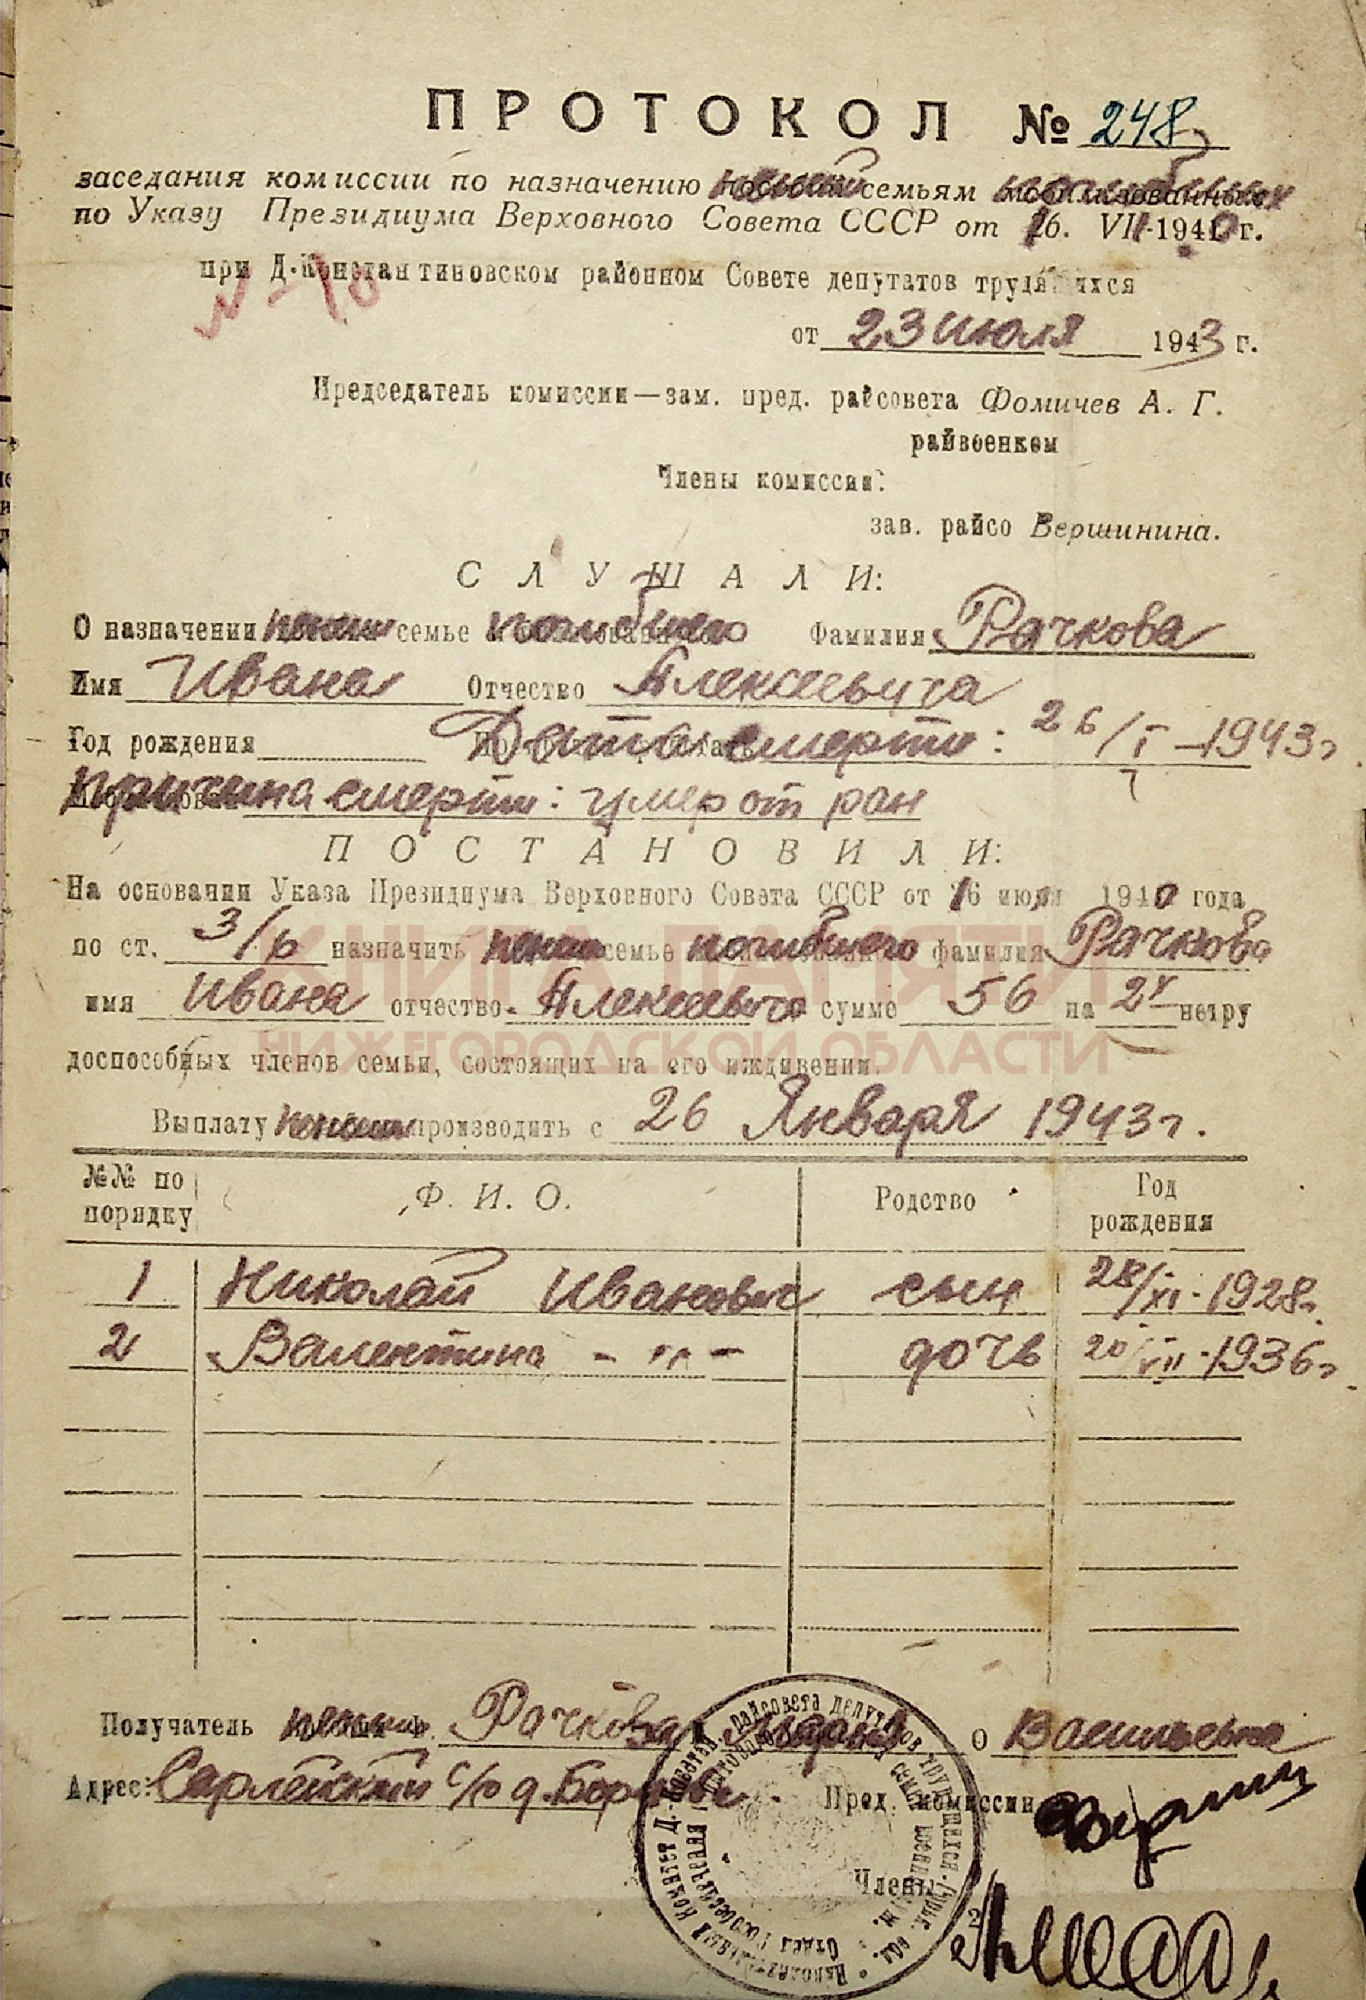 ПРОТОКОЛ № 248
заседания комиссии по назначению пенсий семьям погибших
по Указу Президиума Верховного Совета СССР от 16. VII-1940 г.
при Д-Константиновском районном Совете депутатов трудящихся
от 23 июля 1943 г.
Председатель комиссии—зам. пред. райсовета Фомичев А. Г.
райвоенком
Члены комиссии:
зав. райсо Вершинина.
СЛУШАЛИ:
О назначении пенсии семье погибшего Фамилия Рачкова
Имя Ивана Отчество Алексеевича
Год рождения Дата смерти: 26/I-1943г
Причина смерти: умер от ран
ПОСТАНОВИЛИ:
На основании Указа Президиума Верховного Совета СССР от 16 июля 1940 года
по ст. 3/б назначить пенсию семье погибшего фамилия Рачкова
имя Ивана отчество Алексеевича сумме 56 на 2х нетру
доспособных членов семьи, состоящих на его иждивении.
Выплату пенсии производить с 26 Января 1943г.
№№ по порядку Ф. И. О. Родство Год рождения
1 Николай Иванович сын 28/XI-1928г.
2 Валентина -"- дочь 20/VII-1936г.
Получатель пенсии Ф. Рачкова О Васильевна
Адрес: Сарлейский с/с д. Борисово Пред. комиссии
Члены
КНИГА ПАМЯТИ
НИЖЕГОРОДСКОЙ ОБЛАСТИ